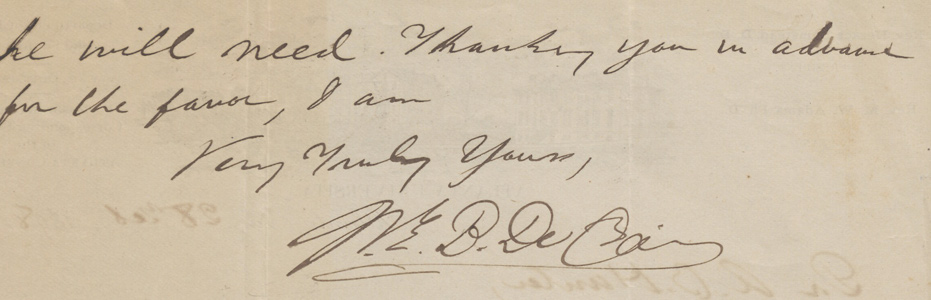 he will need. Thanking you in advance
for the favor, I am
Very Truly Yours,
W. E. B. De